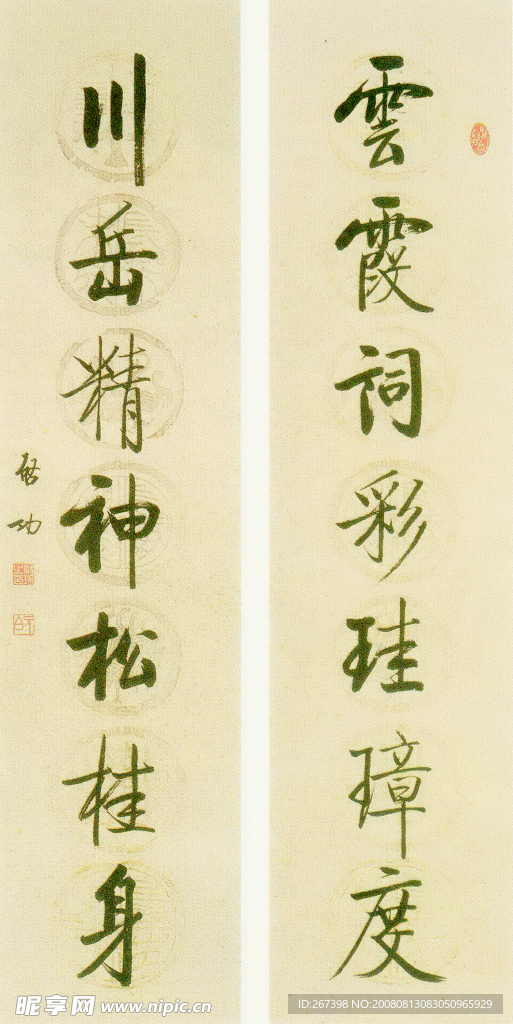 雲霞詞彩珪璋度
川岳精神松桂身
啓功
昵享网 www.nipic.cn
ID:267398 NO:20080813083050965929